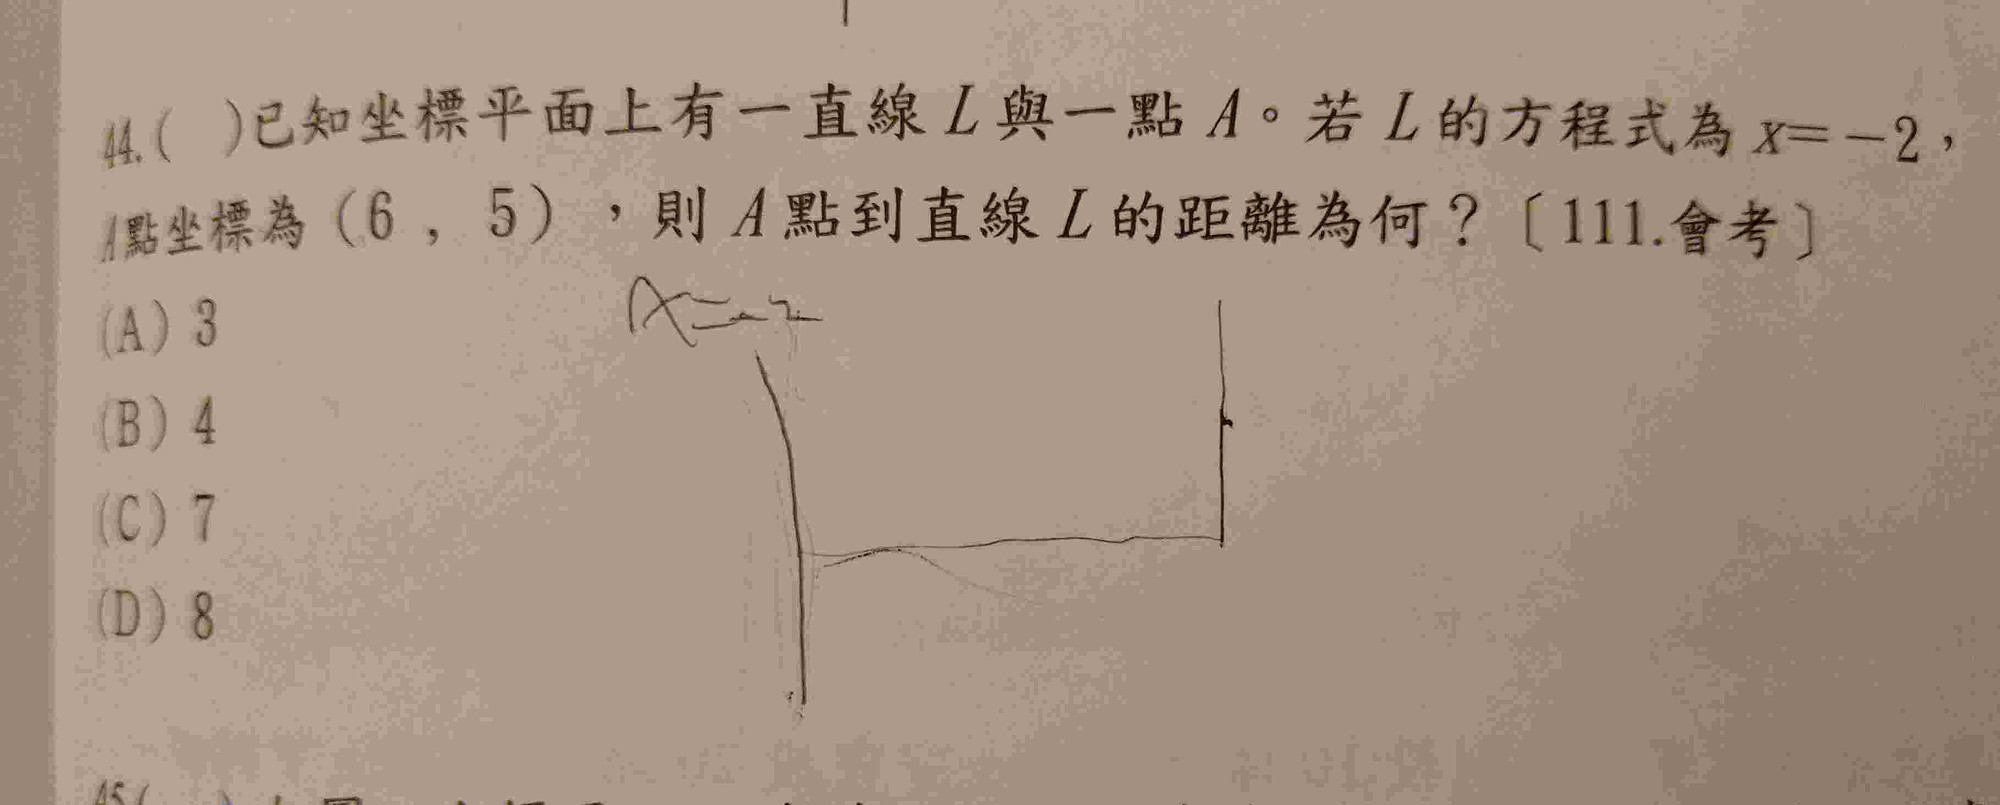 44.(　)已知坐標平面上有一直線 L 與一點 A。若 L 的方程式為 x=-2，
A點坐標為(6，5)，則 A 點到直線 L 的距離為何？〔111.會考〕
(A) 3
x=-2
(B) 4
(C) 7
(D) 8
45(